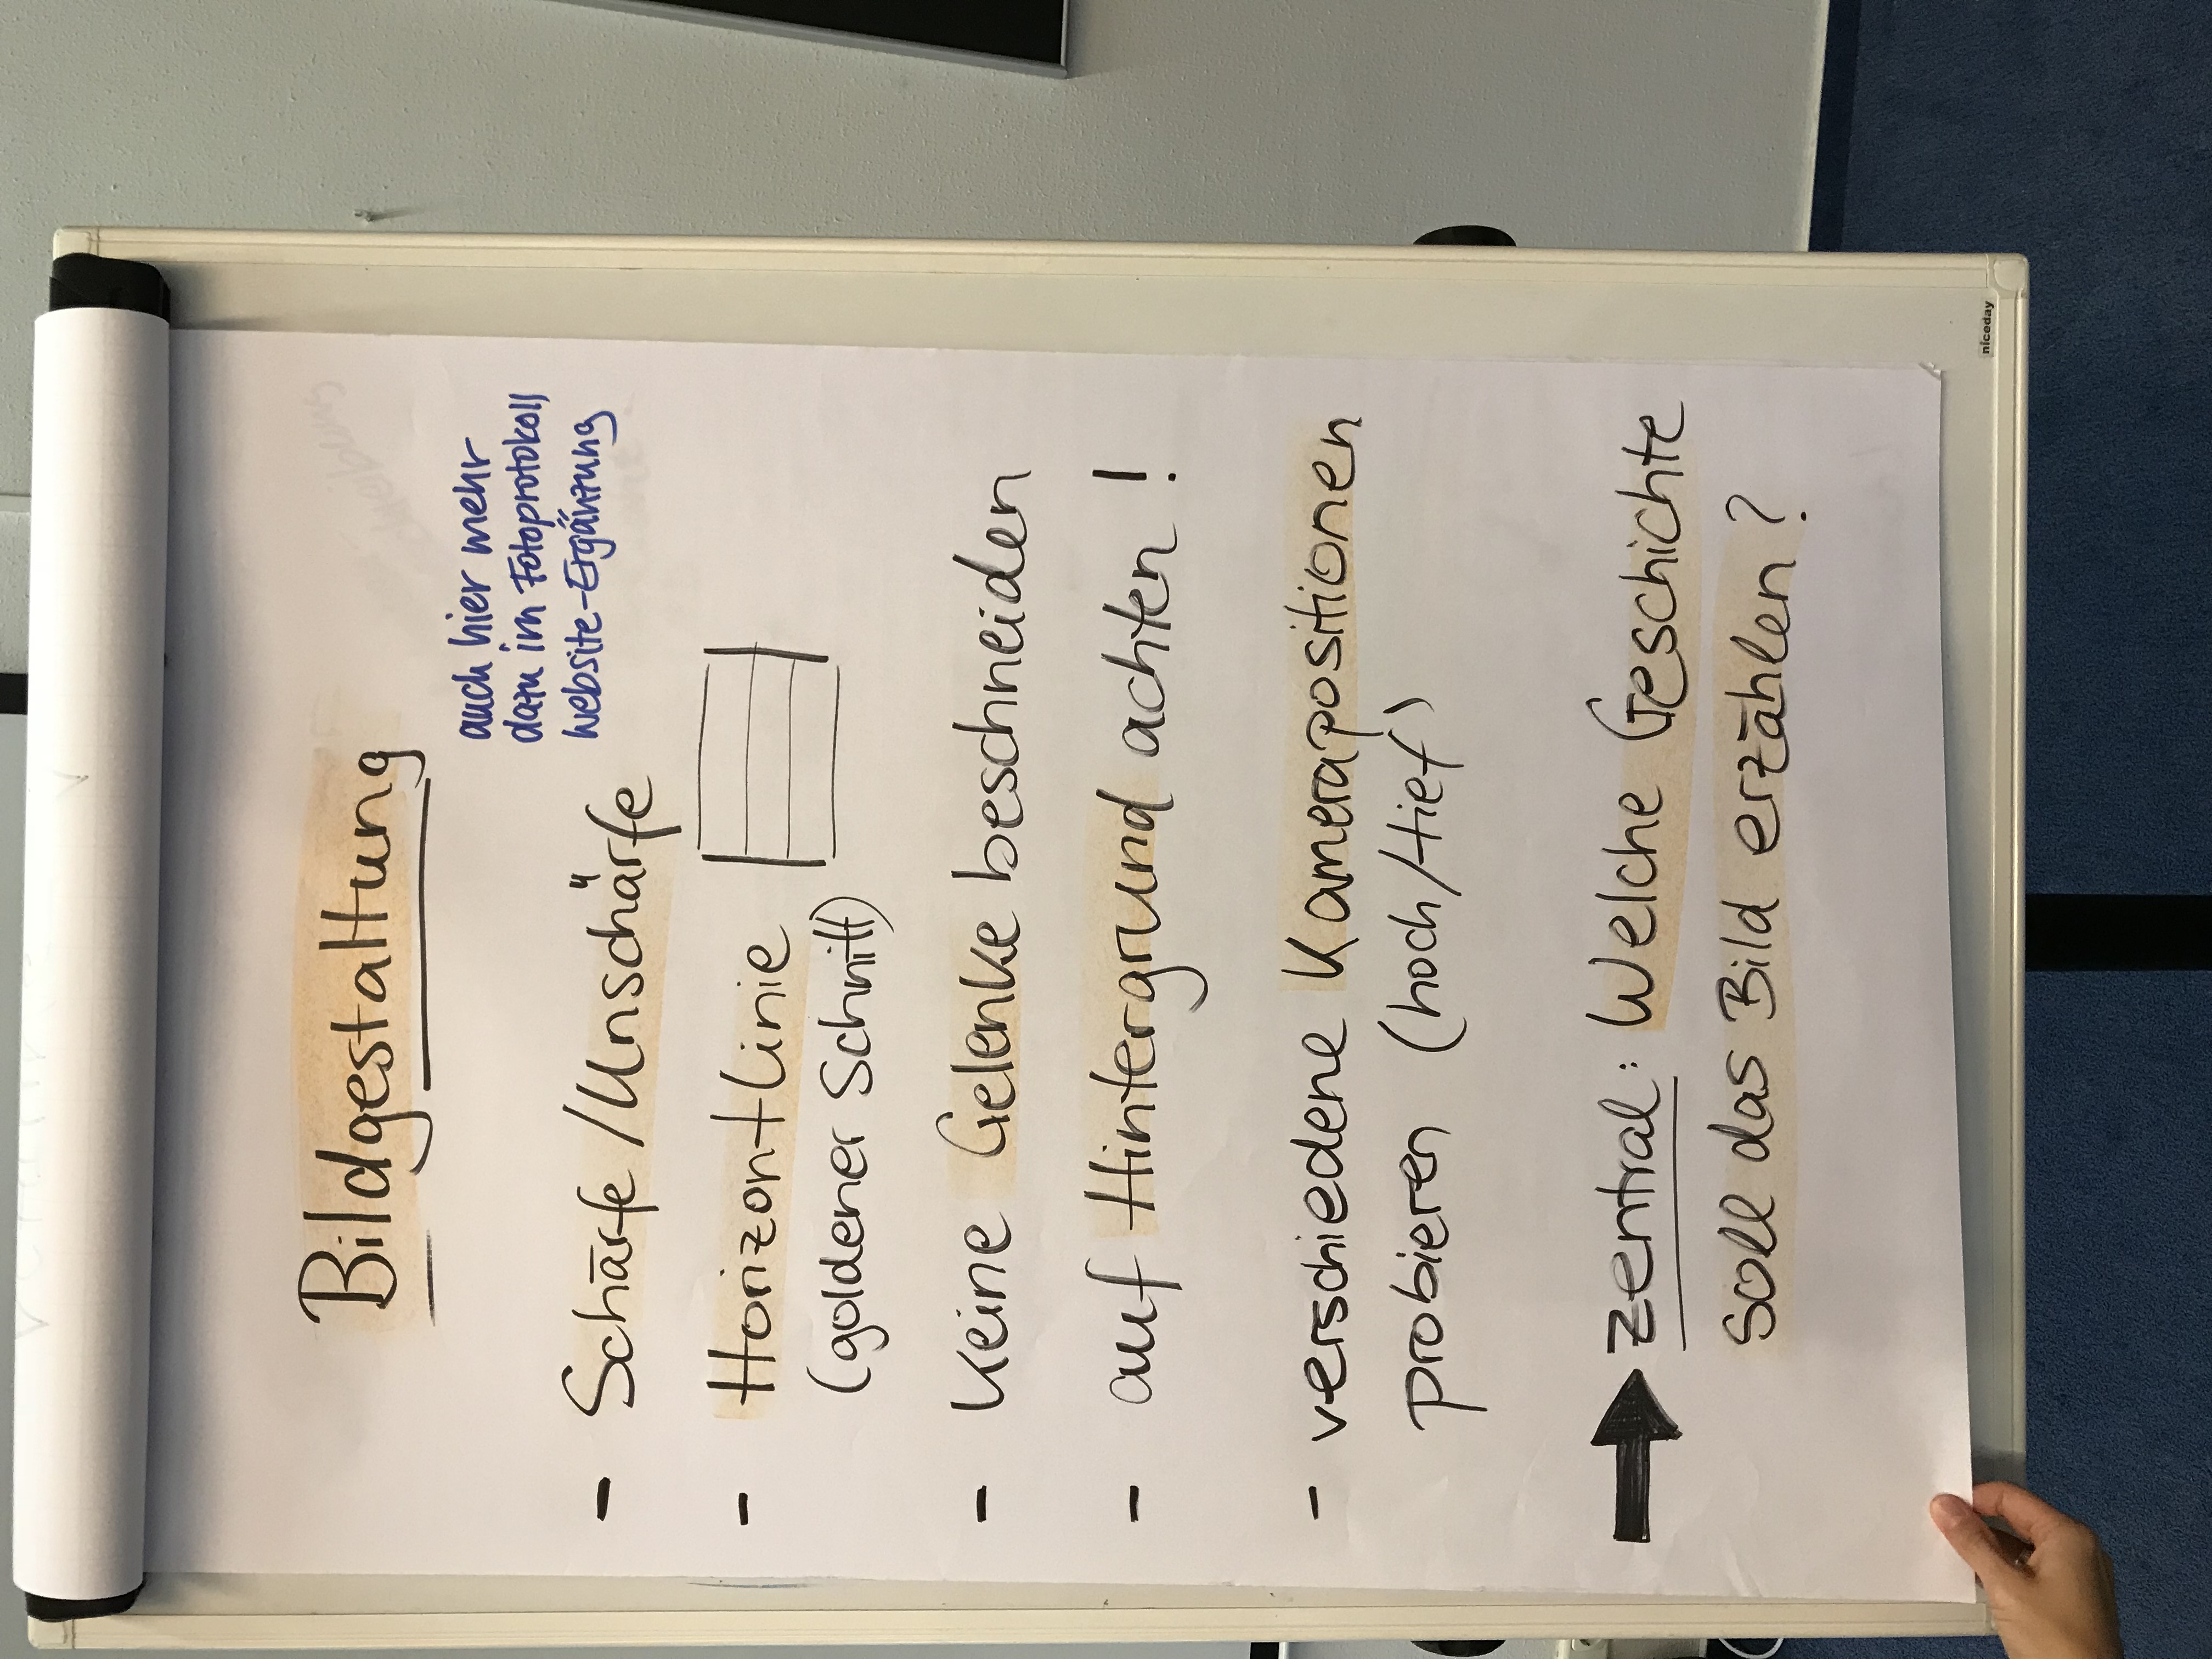 Bildgestaltung
auch hier mehr
dazu im Fotoprotokoll
Website-Ergänzung
- Schärfe/Unschärfe
- Horizont-Linie
(goldener Schnitt)
- Keine Gelenke beschneiden
- auf Hintergrund achten!
- verschiedene Kamerapositionen
probieren (hoch/tief)
→ zentral: Welche Geschichte
soll das Bild erzählen?
niceday